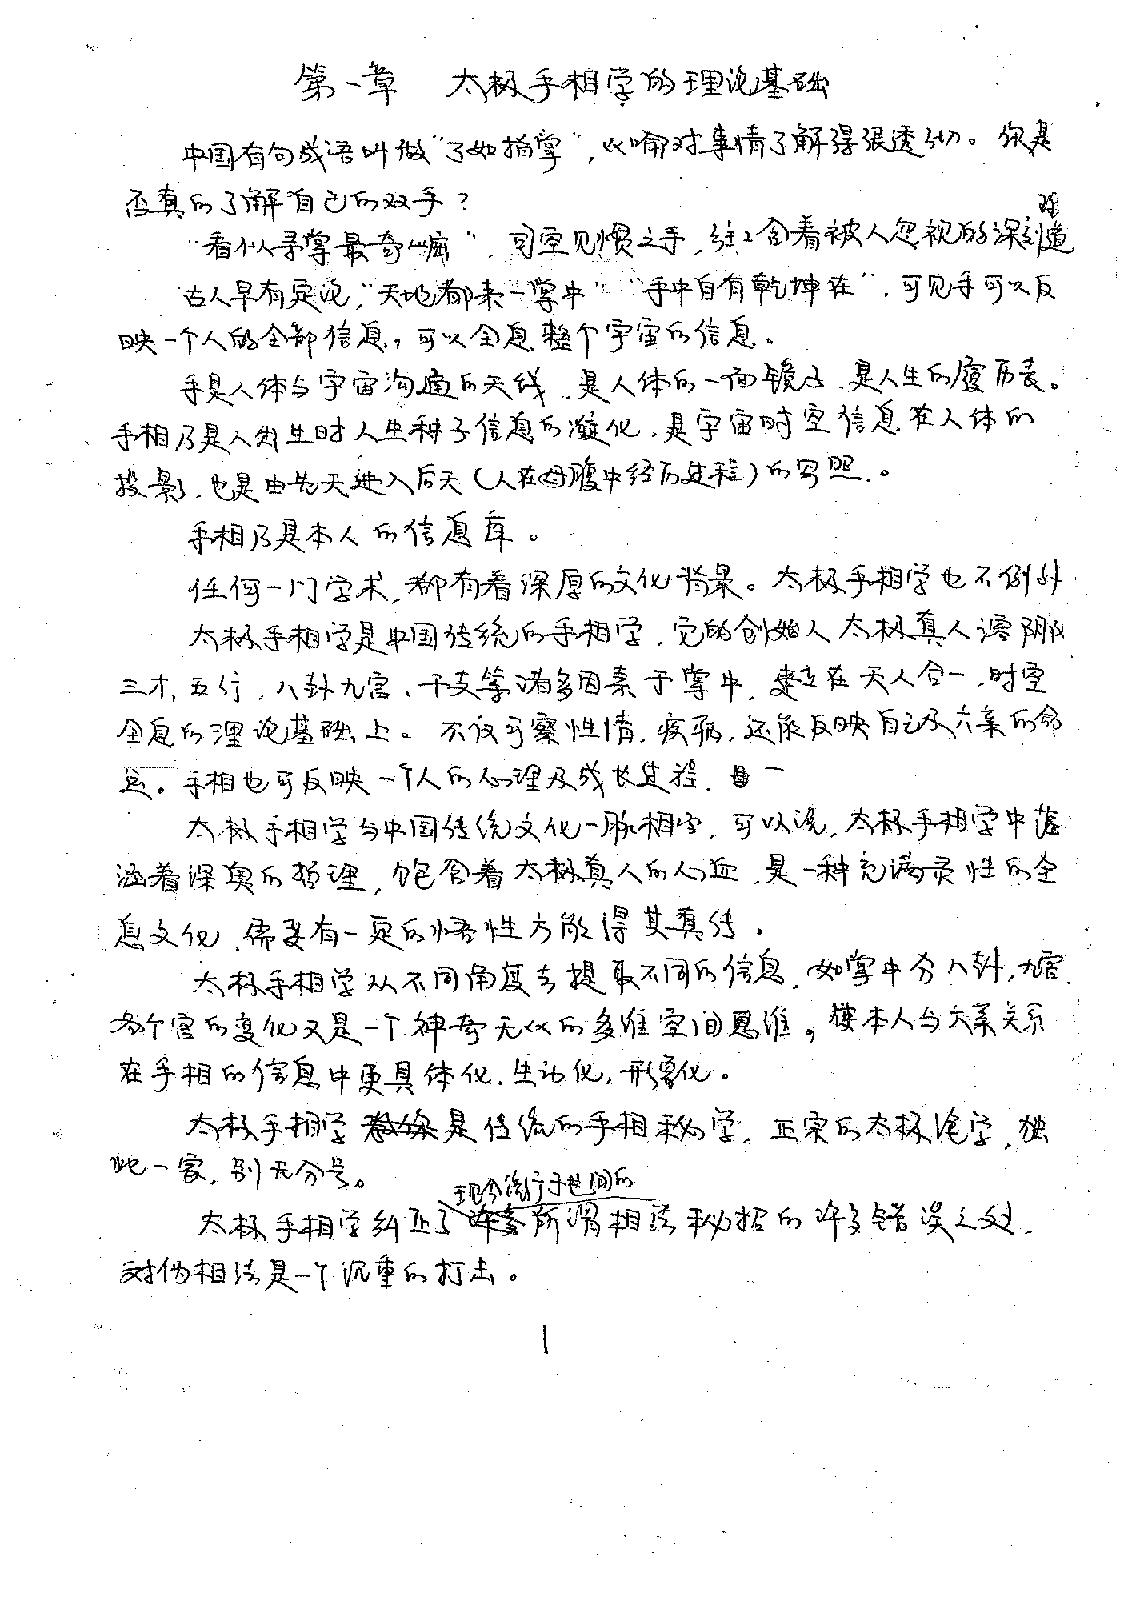 第一章 太极手相学的理论基础
中国有句成语叫做“了如指掌”,以喻对事情了解得很透彻。你是
否真的了解自己的双手?
“看似寻常最奇崛”,司空见惯之手,往往含着被人忽视的深刻道
理
古人早有定论,“天地都来一掌中”“手中自有乾坤在”,可见手可以反
映一个人的全部信息,可以全息整个宇宙的信息。
手是人体与宇宙沟通的天线,是人体的一面镜子,是人生的履历表。
手相乃是人出生时人生种子信息的凝化,是宇宙时空信息在人体的
投影,也是由先天进入后天(人在母腹中经历过程)的写照。
手相乃是本人的信息库。
任何一门学术,都有着深厚的文化背景。太极手相学也不例外
太极手相学是中国传统的手相学,它的创始人太极真人谙阴阳
三才,五行,八卦九宫,干支等诸多因素于掌中,建立在天人合一,时空
全息的理论基础上。不仅可察性情,疾病,还能反映自己及六亲的命
运。手相也可反映一个人的心理及成长过程,
太极手相学与中国传统文化一脉相字,可以说,太极手相学中蕴
涵着深奥的哲理,饱含着太极真人的心血,是一种充满灵性的全
息文化,需要有一定的悟性方能得其真传.
太极手相学从不同角度去提取不同的信息,如掌中分八卦,九宫
各个宫的变化又是一个神奇无比的多维空间思维,使本人与六亲关系
在手相的信息中更具体化,生动化,形象化。
太极手相学是传统的手相秘学,正宗的太极绝学,独
此一家,别无分号。
现今流行于世间的
太极手相学纠正了所谓相法秘招的许多错误之处,
对伪相法是一个沉重的打击。
1